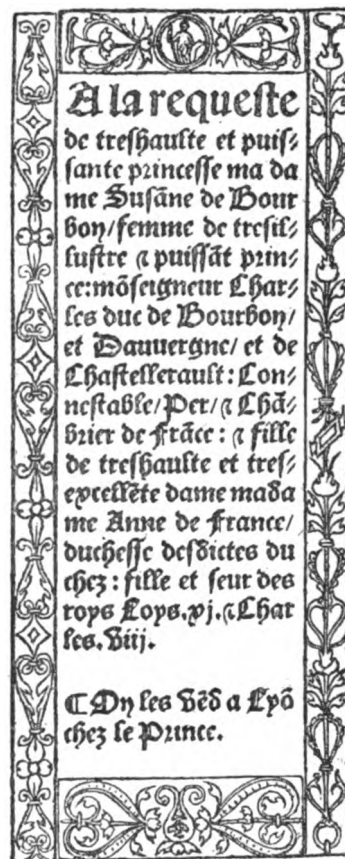 A la requeste
de treshaulte et puis⸗
sante princesse ma da
me Susãne de Bour
bon/femme de tresil⸗
lustre ⁊ puissãt prin⸗
ce:mõseigneur Char⸗
les duc de Bourbon/
et Dauuergne/ et de
Chastellerault: Con⸗
nestable/Per/⁊ Chã⸗
brier de frãce: ⁊ fille
de treshaulte et tres⸗
excellẽte dame mada
me Anne de france/
duchesse desdictes du
chez: fille et seur des
roys Loys.xj.⁊Char
les.viij.
¶On les vẽd a Lyõ
chez le Prince.